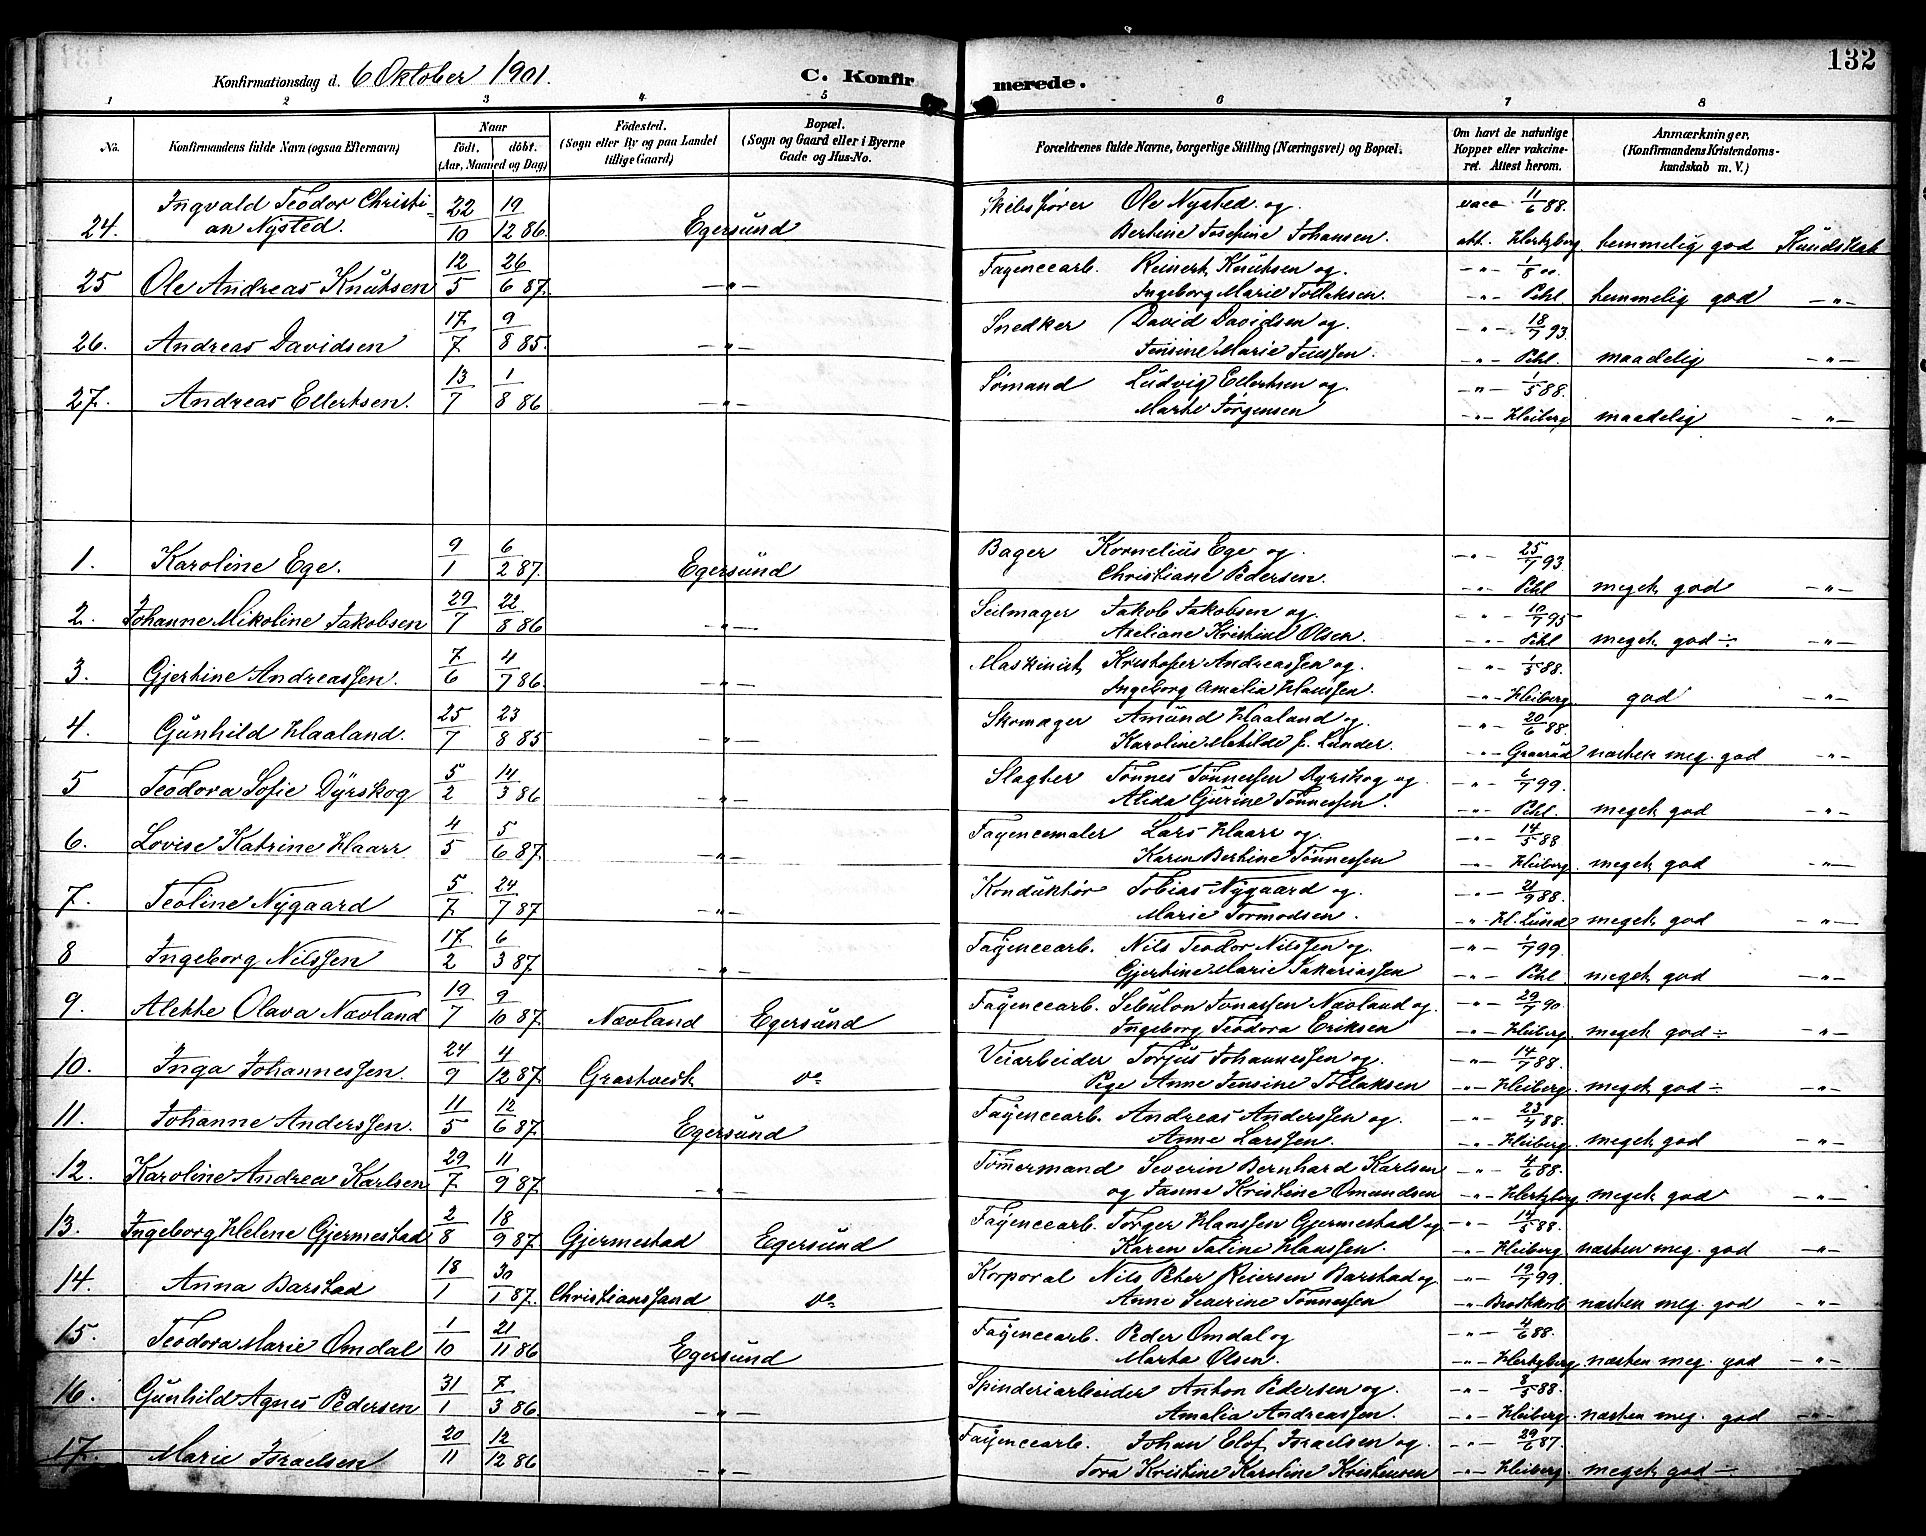 132
Konfirmationsdag d. 6 Oktober 1901. C. Konfirmerede.
1 2 3 4 5 6 7 8
No. Konfirmandens fulde Navn (ogsaa Efternavn) Naar född. döbt. (Aar, Maaned og Dag) Födested. (Sogn eller By og paa Landet tillige Gaard) Bopæl. (Sogn og Gaard eller i Byerne Gade og Hus-No. Forældrenes fulde Navne, borgerlige Stilling (Næringsvei) og Bopæl. Om havt de naturlige Kopper eller vakcineret. Attest herom. Anmærkninger. (Konfirmandens Kristendomskundskab m. V.)
Ingvald Teodor Christi- 22 19 Skibsfører Ole Nysted og vacc 11/6 88.
24. an Nysted. 10 12 86. Egersund Berthine Josefine Johansen. att. Hertzberg hemmelig god Kundskab
12 26 Fayencearb. Reinert Knutsen og -"- 1/8 00.
25 Ole Andreas Knutsen 5 6 87. -"- Ingeborg Marie Tollaksen. -"- Pehl. hemmelig god -"-
17 9 Snedker David Davidsen og -"- 18/7 93
26. Andreas Davidsen 7 8 85. -"- Jensine Marie Jenssen. -"- Pehl. maadelig -"-
13 1 Sømand Ludvig Ellertsen og -"- 1/5 88.
27. Andreas Ellertsen. 7 8 86 -"- Marte Jørgensen -"- Kleiberg maadelig -"-
9 6 Bager Kornelius Ege og -"- 25/7 93.
1. Karoline Ege. 1 2 87. Egersund Christiane Pedersen. -"- Pehl meget god -"-
29 22 Seilmager Jakob Jakobsen og -"- 10/7 95
2. Johanne Mikoline Jakobsen 7 8 86 -"- Axeliane Kristine Olsen. -"- Pehl meget god ÷ -"-
7 4 Maskinist Kristofer Andreassen og -"- 1/5 88.
3. Gjertine Andreassen. 6 7 86. -"- Ingeborg Amalia Hanssen. -"- Kleiberg. god -"-
25 23 Skomager Amund Haaland og -"- 20/6 88.
4. Gunhild Haaland. 7 8 85 -"- Karoline Matilde f. Lunder. -"- Graarud næsten meg. god -"-
5 14 Slagter Tønnes Tønnessen Dyrskog og -"- 99.
5 Teodora Sofie Dyrskog 2 3 86 -"- Alida Gurine Tønnessen. -"- Pehl. meget god -"-
4 5 Fayencemaler Lars Haarr og -"- 14/5 88
6. Lovise Katrine Haarr 5 6 87. -"- Karen Bertine Tønnessen -"- Kleiberg meget god -"-
5 24 Konduktør Tobias Nygaard og -"- 21/9 88.
7. Teoline Nygaard 7 7 87 -"- Marie Tormodsen. -"- Hl. Lund meget god -"-
17 6 Fayencearb. Nils Teodor Nilssen og -"- 1/7 99.
8 Ingeborg Nilssen 2 3 87. -"- Gjertine Marie Sakariassen -"- Pehl. meget god -"-
19 9 Fayencearb. Sebulon Jonassen Nævland og -"- 29/7 90.
9. Alette Olava Nævland 7 10 87. Nævland Egersund Ingeborg Teodora Eriksen -"- Kleiberg. meget god ÷ -"-
24 4 Veiarbeider Torjus Johannessen og -"- 14/7 88.
10. Inga Johannessen. 9 12 87. Grastveit do Pige Anne Jensine Tollaksen -"- Kleiberg. meget god ÷ -"-
11 12 Fayencearb. Andreas Anderssen og -"- 23/7 88.
11. Johanne Anderssen. 5 6 87. Egersund Anne Larssen. -"- Kleiberg. meget god -"-
29 11 Tømmermand Severin Bernhard Karlsen -"- 4/6 88.
12. Karoline Andrea Karlsen 7 9 87. -"- og Janne Kristine Omundsen -"- Hertzberg. meget god -"-
2 18 Fayencearb. Torger Hanssen Gjermestad og -"- 14/5 88.
13. Ingeborg Helene Gjermestad 8 9 87. Gjermestad Egersund Karen Taline Hanssen. -"- Kleiberg næsten meg. god -"-
18 30 Korporal Nils Peter Reiersen Barstad og -"- 19/7 99.
14. Anna Barstad 1 1 87. Christianssand do Anne Severine Tønnessen -"- Brodtkorb næsten meg. god -"-
1 21 Fayencearb. Peder Omdal og -"- 4/6 88.
15. Teodora Marie Omdal 10 11 86 Egersund Marta Olsen. -"- Hertzberg næsten meg. god -"-
31 7 Spinderiarbeider Anton Pedersen og -"- 8/5 88.
16. Gunhild Agnes Pedersen 1 3 86. -"- Amalia Andreassen. -"- Kleiberg. næsten meg. god -"-
20 12 Fayencearb. Johan Elof Israelsen og -"- 29/6 87.
17. Marie Israelsen 11 12 86 -"- Tora Kristine Karoline Kristensen -"- Kleiberg. meget god ÷